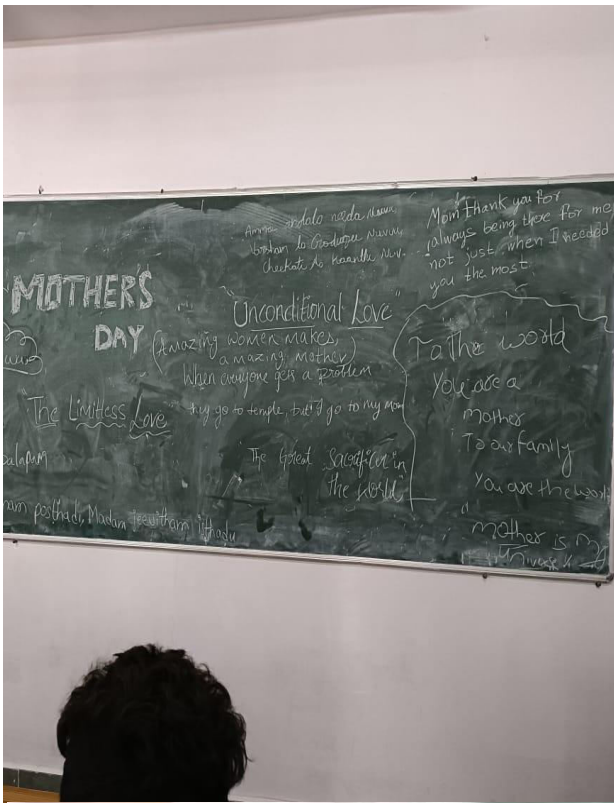 MOTHER'S
DAY
The Limitless Love
posthadi, Madam jeevitham isthadu
needa Nuvvu
lo Nuvvu
Cheekate lo Nuv.
"Unconditional Love"
(Amazing women makes,
a amazing mother)
When everyone gets a problem
they go to temple, but I'd go to my mom
The Great Sacrifice in
the World
Mom thank you for
always being there for me
not just when I needed
you the most.
To the world
You are a
mother
To our family
You are the world
"
mother is my
universe"